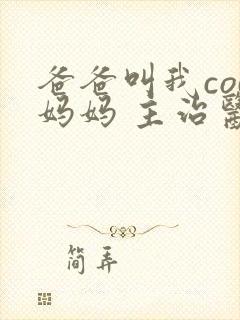 爸爸叫我co
妈妈 主治
简弄